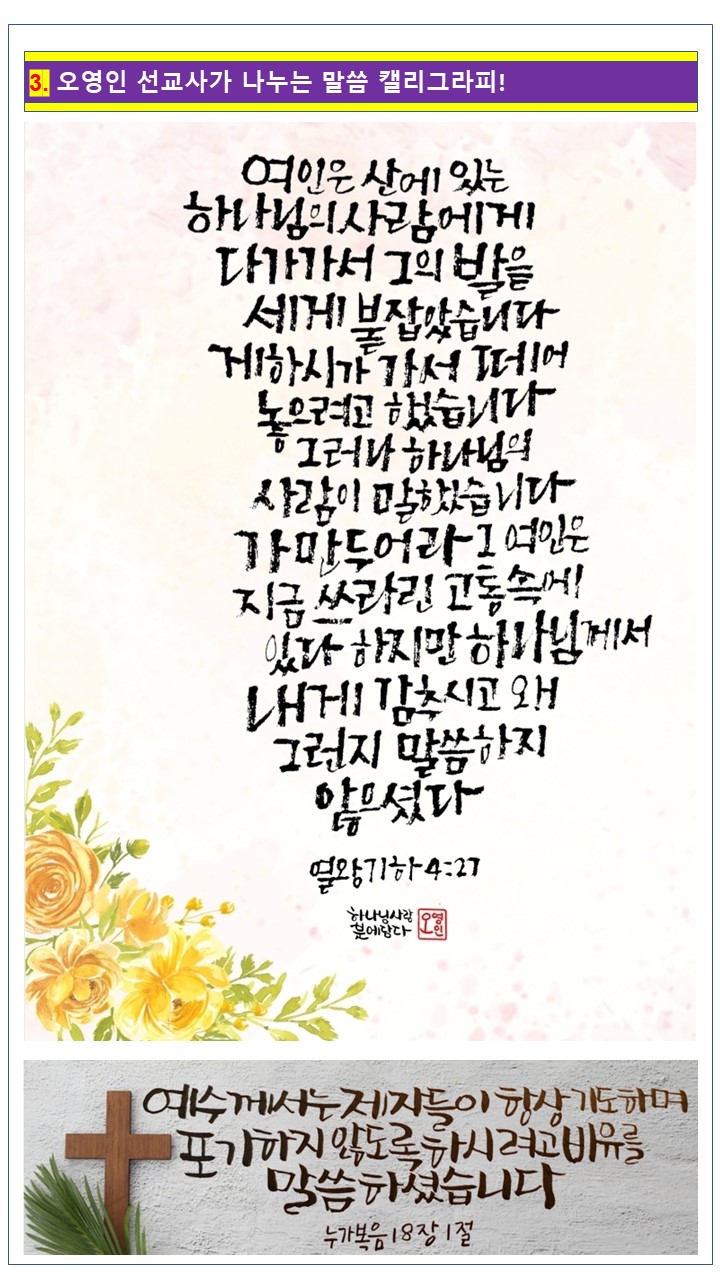 3. 오영인 선교사가 나누는 말씀 캘리그라피!
여인은 산에 있는
하나님의 사람에게
다가가서 그의 발을
세게 붙잡았습니다
게하시가 가서 떼어
놓으려고 했습니다
그러나 하나님의
사람이 말했습니다
가만두어라 그 여인은
지금 쓰라린 고통속에
있다 하지만 하나님께서
내게 감추시고 왜
그런지 말씀하지
않으셨다
열왕기하 4:27
하나님사랑
붓에담다
오영인
예수께서는 제자들이 항상 기도하며
포기하지 않도록 하시려고 비유를
말씀하셨습니다
누가복음 18장 1절